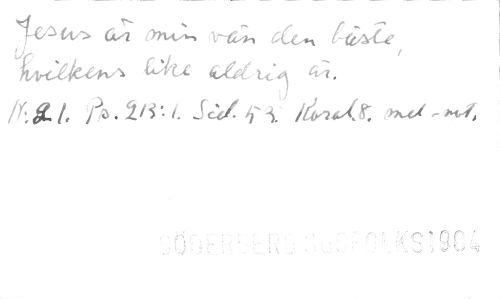 Jesus är min vän den bäste,
hvilkens like aldrig är.
N: 21. Ps. 213:1. Sid. 53. Koral. 8. mel-not.
SÖDERBERG 1904